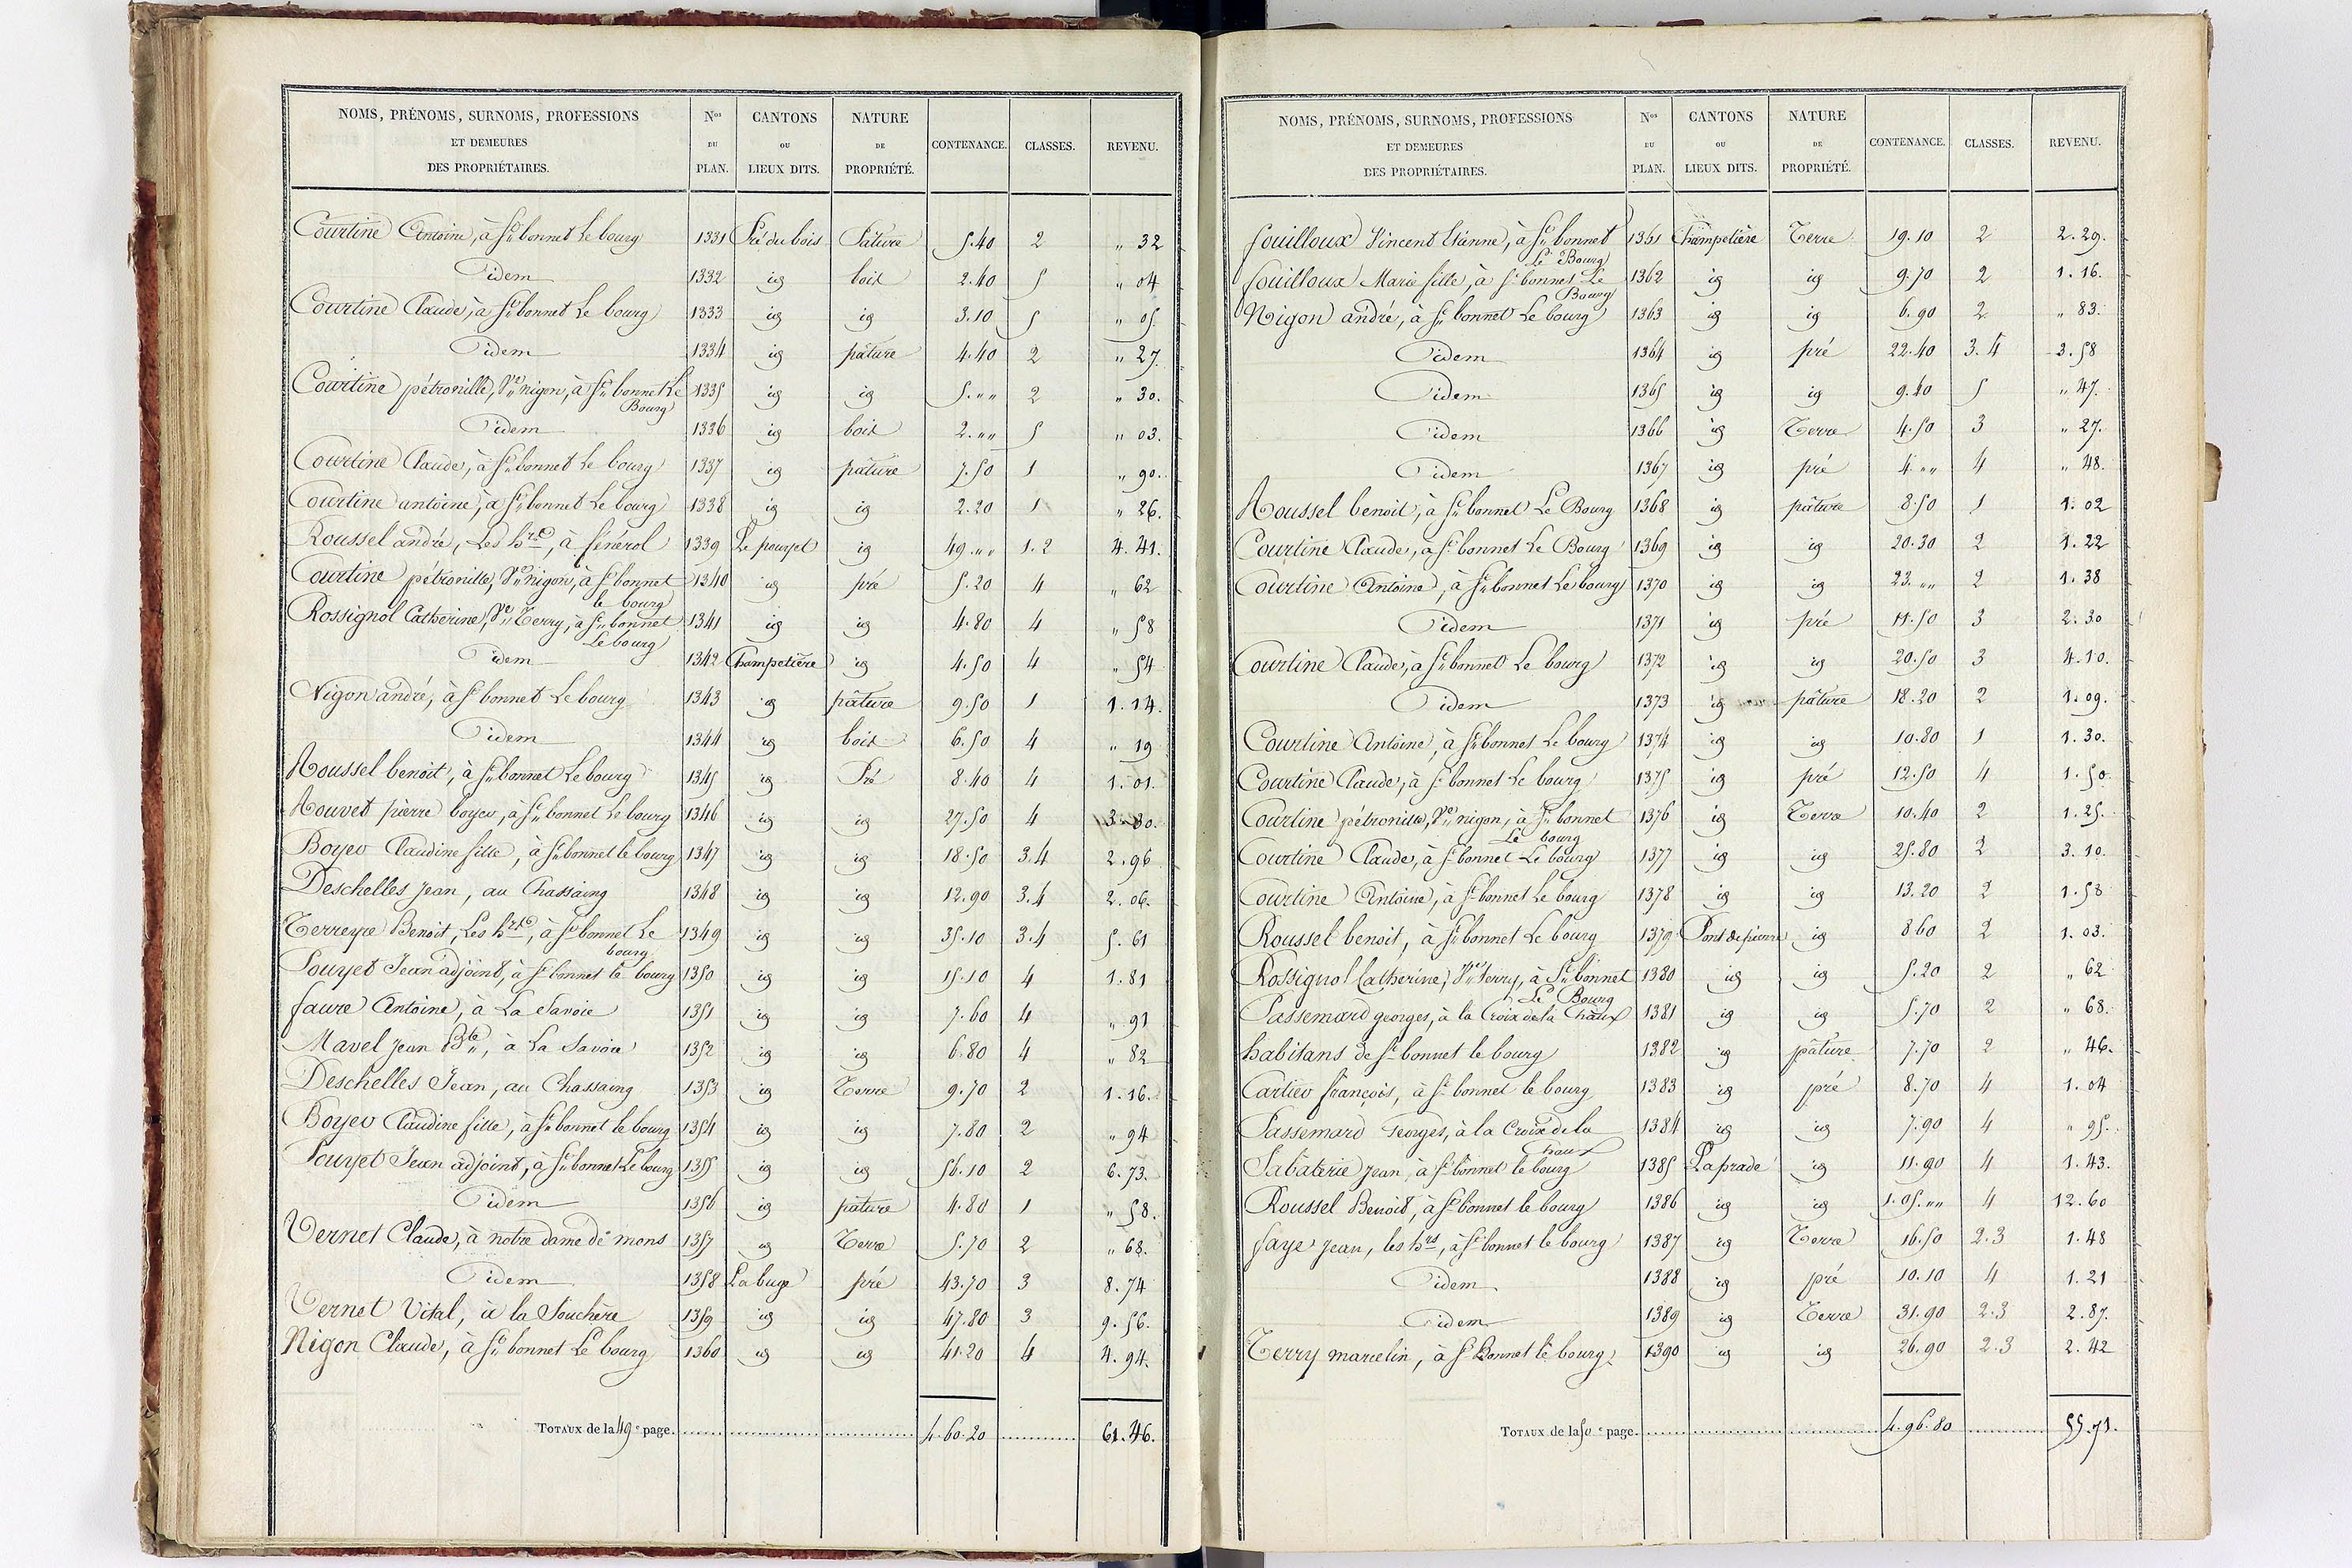 NOMS, PRÉNOMS, SURNOMS, PROFESSIONS ET DEMEURES DES PROPRIÉTAIRES. Nos DU PLAN. CANTONS OU LIEUX DITS. NATURE DE PROPRIÉTÉ. CONTENANCE. CLASSES. REVENU.
Courtine Antoine, à St bonnet Le bourg 1331 Pré du bois Pature 5.40 2 " 32
idem 1332 id bois 2.40 5 " 04
Courtine Claude, à St bonnet Le bourg 1333 id id 3.10 5 " 05
idem 1334 id pâture 4.40 2 " 27.
Courtine pétronille, Ve nigon, à St bonnet Le 1335 id id 5. " " 2 " 30.
Bourg
idem 1336 id bois 2. " " 5 " 03.
Courtine Claude, à St bonnet Le bourg 1337 id pature 7.50 1 " 90.
Courtine antoine, à St bonnet Le bourg 1338 id id 2.20 1 " 26.
Roussel andré, Les hrs, à fénérol 1339 Le pouyet id 49. " " 1.2 4.41.
Courtine pétronille, Ve nigon, à St bonnet 1340 id pré 5.20 4 " 62
le bourg
Rossignol Catherine, Ve Terry, à St bonnet 1341 id id 4.80 4 " 58
Le bourg
idem 1342 Champetière id 4.50 4 " 54
Nigon andré, à St bonnet Le bourg 1343 id pâture 9.50 1 1.14.
idem 1344 id bois 6.50 4 " 19
Roussel benoit, à St bonnet Le bourg 1345 id Pré 8.40 4 1.01.
Rouvet pierre boyer, à St bonnet Le bourg 1346 id id 27.50 4 3.30.
Boyer Claudine fille, à St bonnet le bourg 1347 id id 18.50 3.4 2.96
Deschelles jean, au Chassaing 1348 id id 12.90 3.4 2.06.
Terreyre Benoit, Les hrs, à St bonnet Le 1349 id id 35.10 3.4 5.61
bourg
Pouyet Jean adjoint, à St bonnet le bourg 1350 id id 15.10 4 1.81
faure Antoine, à La Savoie 1351 id id 7.60 4 " 91
Mavel jean Bte, à La Savoie 1352 id id 6.80 4 " 82
Deschelles Jean, au Chassaing 1353 id Terre 9.70 2 1.16.
Boyer Claudine fille, à St bonnet le bourg 1354 id id 7.80 2 " 94
Pouyet Jean adjoint, à St bonnet Le bourg 1355 id id 56.10 2 6.73.
idem 1356 id pature 4.80 1 " 58.
Vernet Claude, à notre dame de mons 1357 id Terre 5.70 2 " 68.
idem 1358 La buge pré 43.70 3 8.74
Vernet Vital, à la Souchère 1359 id id 47.80 3 9.56.
Nigon Claude, à St bonnet Le bourg 1360 id id 41.20 4 4.94.
TOTAUX de la 49e page. 4.60.20 61.46.
NOMS, PRÉNOMS, SURNOMS, PROFESSIONS ET DEMEURES DES PROPRIÉTAIRES. Nos DU PLAN. CANTONS OU LIEUX DITS. NATURE DE PROPRIÉTÉ. CONTENANCE. CLASSES. REVENU.
fouilloux Vincent Etienne, à St bonnet 1361 Champetière Terre 19.10 2 2.29.
Le Bourg
fouilloux Marie fille, à St bonnet Le 1362 id id 9.70 2 1.16.
Bourg
Nigon andré, à St bonnet Le bourg 1363 id id 6.90 2 " 83.
idem 1364 id pré 22.40 3.4 3.58
idem 1365 id id 9.40 5 " 47.
idem 1366 id Terre 4.50 3 " 27.
idem 1367 id pré 4. " " 4 " 48.
Roussel benoit, à St bonnet Le Bourg 1368 id pâture 8.50 1 1.02
Courtine Claude, à St bonnet Le Bourg 1369 id id 20.30 2 1.22
Courtine Antoine, à St bonnet Le bourg 1370 id id 23. " " 2 1.38
idem 1371 id pré 11.50 3 2.30
Courtine Claude, à St bonnet Le bourg 1372 id id 20.50 3 4.10.
idem 1373 id pâture 18.20 2 1.09.
Courtine Antoine, à St bonnet Le bourg 1374 id id 10.80 1 1.30.
Courtine Claude, à St bonnet Le bourg 1375 id pré 12.50 4 1.50.
Courtine pétronille, Ve nigon, à St bonnet 1376 id Terre 10.40 2 1.25.
Le bourg
Courtine Claude, à St bonnet Le bourg 1377 id id 25.80 2 3.10.
Courtine Antoine, à St bonnet Le bourg 1378 id id 13.20 2 1.58
Roussel benoit, à St bonnet Le bourg 1379 Pont de pierre id 8.60 2 1.03.
Rossignol Catherine, Ve terry, à St bonnet 1380 id id 5.20 2 " 62
Le Bourg
Passemard georges, à la Croix de la Chaux 1381 id id 5.70 2 " 68.
habitans de St bonnet le bourg 1382 id pâture 7.70 2 " 46.
Cartier françois, à St bonnet le bourg 1383 id pré 8.70 4 1.04
Passemard Georges, à la Croix de la 1384 id id 7.90 4 " 95.
Chaux
Sabaterie jean, à St bonnet le bourg 1385 La prade id 11.90 4 1.43.
Roussel Benoit, à St bonnet le bourg 1386 id id 1.05. " " 4 12.60
faye jean, les hrs, à St bonnet le bourg 1387 id Terre 16.50 2.3 1.48
idem 1388 id pré 10.10 4 1.21
idem 1389 id Terre 31.90 2.3 2.87.
Terry marcelin, à St Bonnet le bourg 1390 id id 26.90 2.3 2.42
TOTAUX de la 50e page. 4.96.80 55.71.